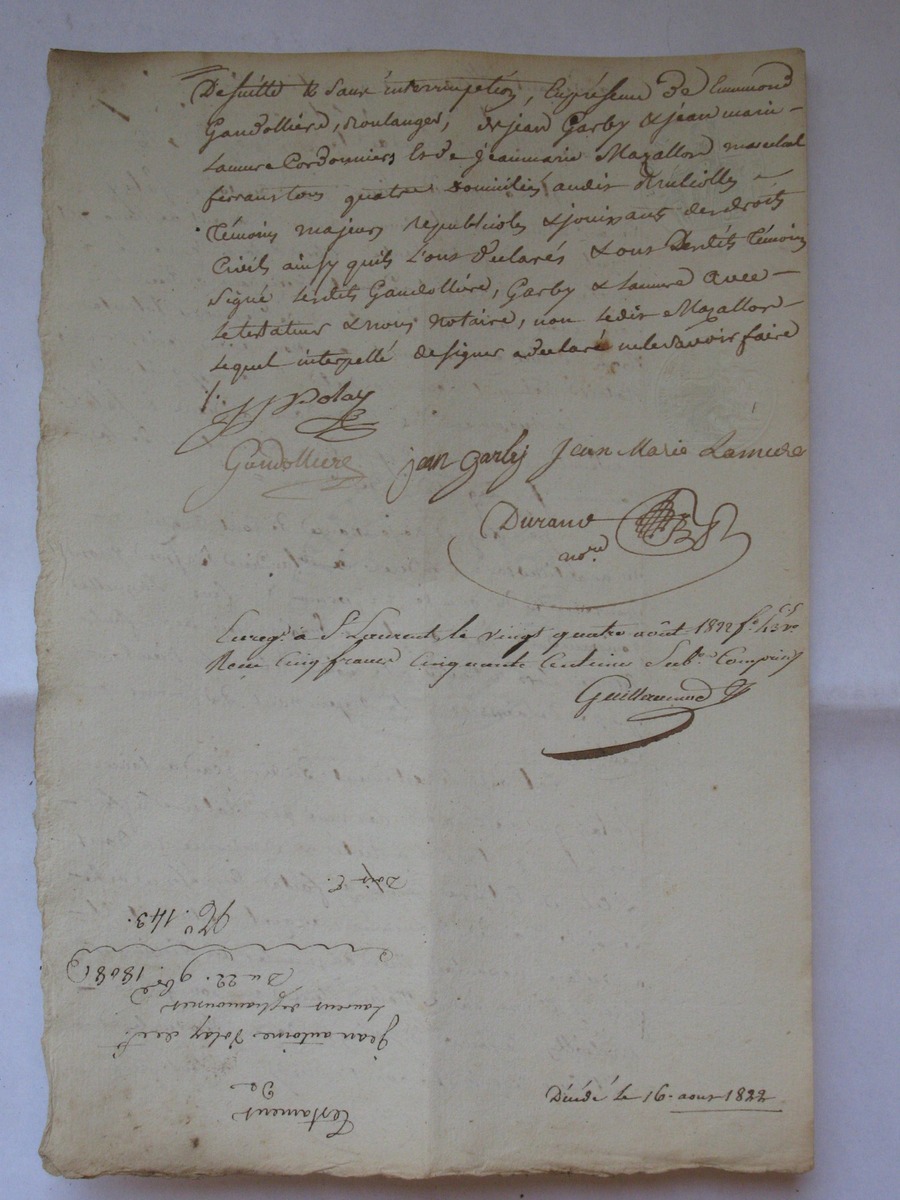 De suitte & sans interruption, En présence de Emmond
Gandolliere, Boulanger, de jean Garby & jean marie
Lamure Cordonniers Et de jeanmarie Mazallon marechal
ferrant tous quatre domiciliés audit
Témoins majeurs republicoles & jouissants des droits
Civils ainsy quils L'ont déclarés & ont Lesdits Témoins
Signé Lesdits Gandollière, Garby & Lamure avec
Letestateur & nous Notaire, non Ledit Mazallon
Lequel interpellé designer a déclaré nele savoir faire
/.
Gandolliere jean garby Jean Marie Lamure
Durand
nore.
Enregé. à St. Laurent, le vingt quatre août 1822 fo. 43 vo
Reçu Cinq francs Cinquante Centimes Subon Compris
Guillaumond
No. 143.
Du 22. 9bre. 1808
jean antoine
Laurent
Testament
De
Décédé le 16. aout 1822